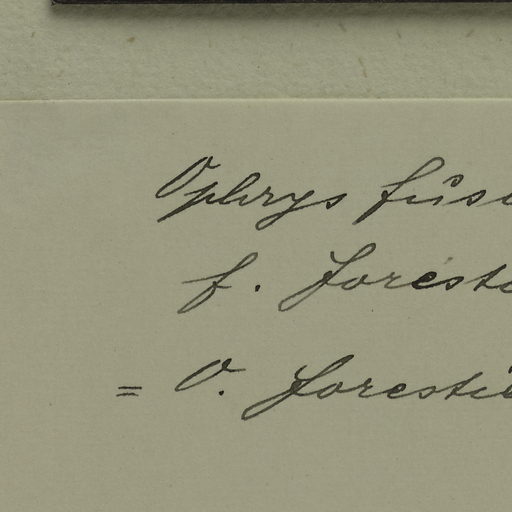 Ophrys fus
f. forest
= O. foresti